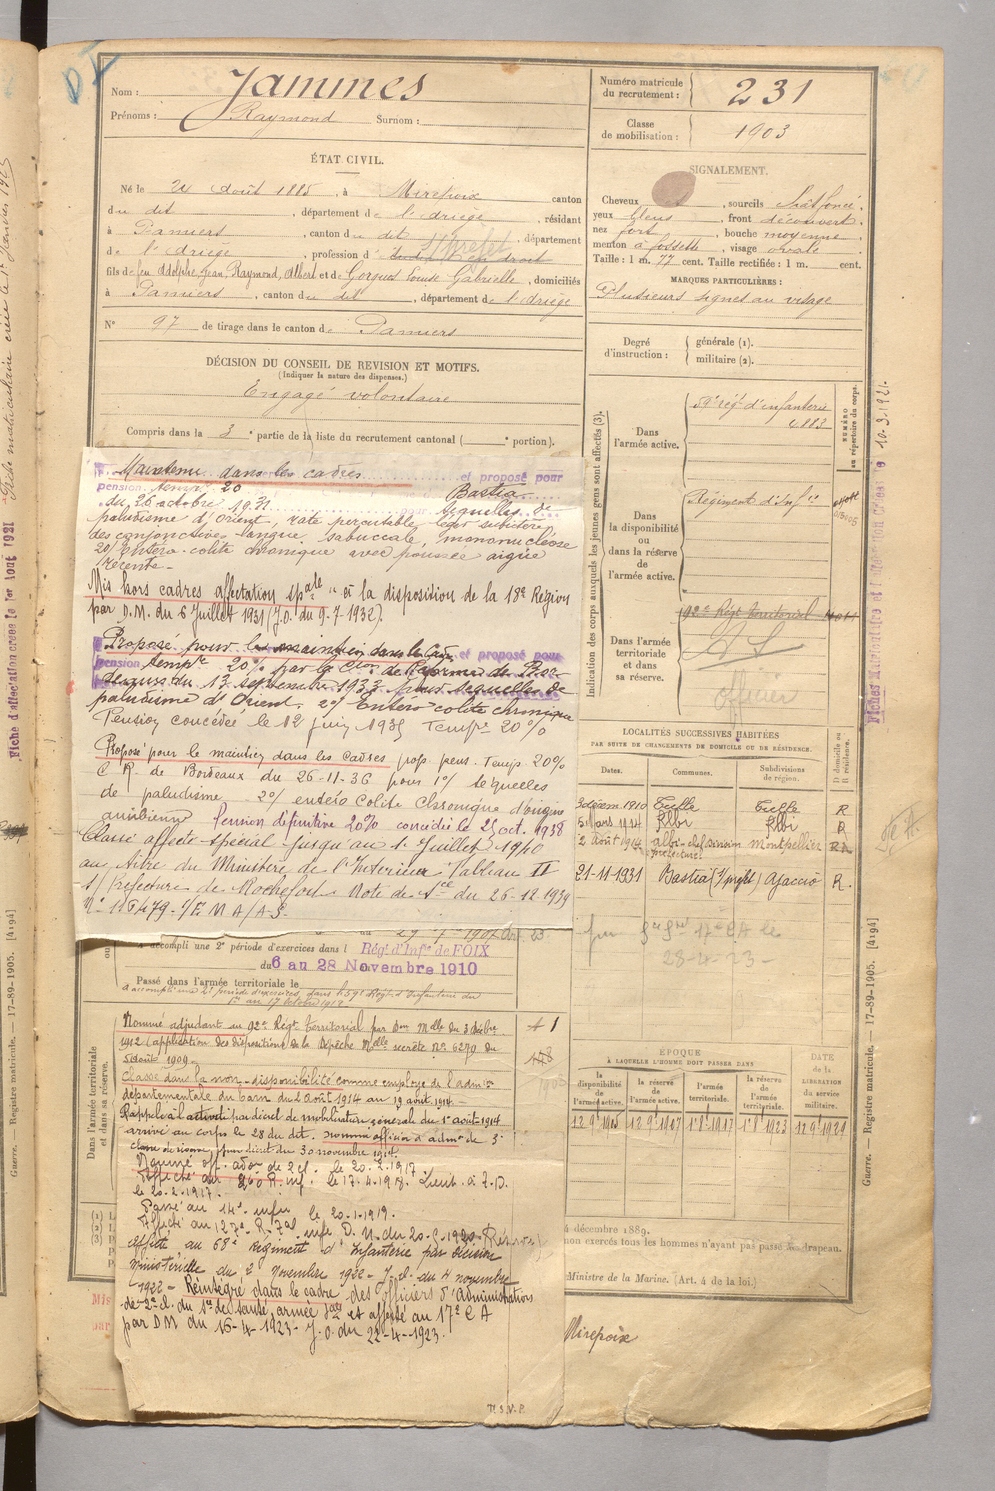 Nom : Jammes
Prénoms : Raymond Surnom :
Numéro matricule du recrutement : 231
Classe de mobilisation : 1903
ÉTAT CIVIL.
Né le août 1885, à Mirepoix canton
du dit, département de l'Ariège, résidant
à Pamiers, canton du dit, département
de l'Ariège, profession d S/Préfet en droit
fils de feu Adolphe, Jean, Raymond, Albert et de Gorgues Louise Gabrielle, domiciliés
à Pamiers, canton du dit, département de l'Ariège
N° 97 de tirage dans le canton de Pamiers
DÉCISION DU CONSEIL DE REVISION ET MOTIFS.
(Indiquer la nature des dispenses.)
Engagé volontaire
Compris dans la 3e partie de la liste du recrutement cantonal ( e portion).
SIGNALEMENT.
Cheveux , sourcils chât foncé.
yeux bleus, front découvert.
nez fort, bouche moyenne
menton à fossette, visage ovale
Taille : 1 m. 77 cent. Taille rectifiée : 1 m. cent.
MARQUES PARTICULIÈRES :
Plusieurs signes au visage
Degré d'instruction : générale (1).
militaire (2).
Indication des corps auxquels les jeunes gens sont affectés (3).
NUMÉRO au répertoire du corps.
Dans l'armée active.
59e rég. d'infanterie
Dans la disponibilité ou dans la réserve de l'armée active.
Régiment d'Inf ie
Dans l'armée territoriale et dans sa réserve.
92e Régt territorial
officier
Maintenu dans les cadres et proposé pour
pension temp. 20 Bastia
du 26 octobre 1931 pour séquelles de
paludisme d'Orient, rate percutable, léger subictère
des conjonctives langue saburrale, mononucléose
2o/ Entéro-colite chronique avec poussée aigüe
récente -
Mis hors cadres affectation spale " à la disposition de la 18e Région
par D.M. du 6 Juillet 1931 (J.O. du 9-7-1932).
Proposé pour le maintien dans les Cadres et proposé pour
pension tempre 20% par la Cion de Réforme de
du 13 septembre 1933 pour séquelles de
paludisme d'Orient. 2o/ Entéro colite chronique
Pension concédée le 12 juin 1935 Tempre 20%
Proposé pour le maintien dans les cadres prop pens. Temp. 20%
C R. de Bordeaux du 26-11-36 pour 1o/ séquelles
de paludisme 2o/ entéro colite chronique d'origine
amibienne Pension définitive 20% concédée le 25 oct. 1938
Classé affecté spécial jusqu'au 1er Juillet 1940
au titre du Ministère de l'Intérieur Tableau II
S/ Préfecture de Rochefort - Note de Sce du 26-12-1939
No 116479-1/E M A/A-S-
A accompli une 2e période d'exercices dans l Régt d'Infie de FOIX
du 6 au 28 Novembre 1910
Passé dans l'armée territoriale le
A accompli une 2e période d'exercices dans le 59e Régt d'Infanterie du
1er au 17 octobre 1912
Dans l'armée territoriale et dans sa réserve.
Nommé adjudant au 92e Régt Territorial par Don Mlle du 3 décbre
1912 (application des dispositions de la Dépêche Melle secrète No 6279 du
5 août 1909.
Classé dans la non-disponibilité comme employé de l'admon
départementale du Tarn du 2 août 1914 au 19 août 1914.
Rappelé à l'activité par décret de mobilisation générale du 1er août 1914
arrivé au corps le 28 du dit. nommé officier d'admon de 3e
classe de réserve par décret du 30 novembre 1914.
Nommé off. adon de 2e cl. le 20.2.1917.
Affecté au 260 R. inf. le 17.4.1918. Lieut. à T.D.
le 20.2.1917.
Passé au 14e infie le 20.1.1919.
Affecté au 127e R. Tal infie
affecté au 68e régiment d'Infanterie par décision
ministérielle du 2 Novembre 1922 - J.o. du 4 novembre
1922 - Réintégré dans le cadre des Officiers d'Administration
de 2e cl. du Sce de santé, armée Tale et affecté au 17e C A
par DM du 16-4-1923 - J.O. du 22-4-1923.
LOCALITÉS SUCCESSIVES HABITÉES
PAR SUITE DE CHANGEMENTS DE DOMICILE OU DE RÉSIDENCE.
Dates. Communes. Subdivisions de région. D domicile ou R résidence.
3 décem 1910 Tulle Tulle R
5 Mars 1914 Albi Albi R
2 août 1914 albi - chef division préfecture Montpellier R
21-11-1931 Bastia (S/préft) Ajaccio R.
17e CA le
28-4-23-
ÉPOQUE
À LAQUELLE L'HOMME DOIT PASSER DANS
DATE de la LIBÉRATION du service militaire.
la disponibilité de l'armée active. la réserve de l'armée active. l'armée territoriale. la réserve de l'armée territoriale.
12 9e 1905 12 9e 1907 1er 8e 1917 1er 8e 1923 12 9e 1929
4 décembre 1889.
non exercés tous les hommes n'ayant pas passé le drapeau.
Ministre de la Marine. (Art. 4 de la loi.)
Mirepoix
T. S. V. P.
Guerre. — Registre matricule. — 17-89-1905. [4194]
Guerre. — Registre matricule. — 17-89-1905. [4194]
Fiche d'affectation créée le 1er Aout 1921
10-3-1921.